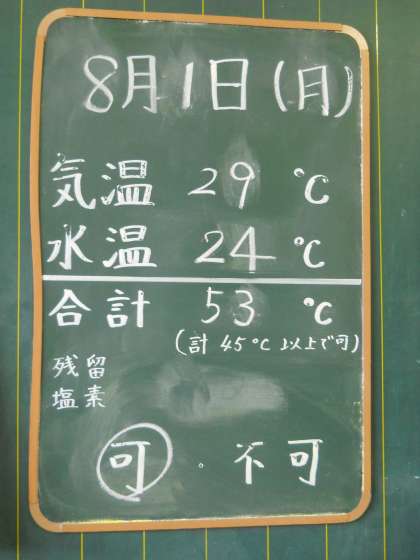 8月1日(月)
気温 29 ℃
水温 24 ℃
合計 53 ℃
(計 45℃ 以上で可)
残留
塩素
可 ・ 不可